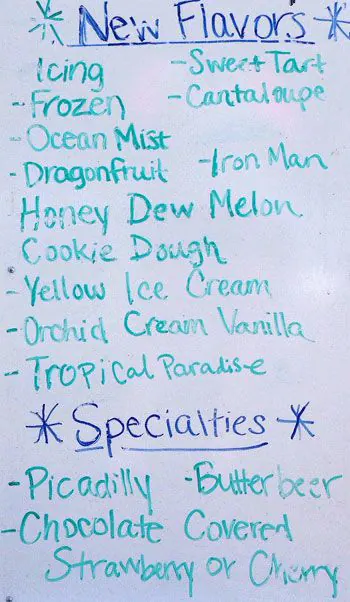 * New Flavors *
Icing -Sweet Tart
-Frozen -Cantaloupe
-Ocean Mist
-Dragonfruit -Iron Man
Honey Dew Melon
Cookie Dough
-Yellow Ice Cream
-Orchid Cream Vanilla
-Tropical Paradise
* Specialties *
-Picadilly -Butterbeer
-Chocolate Covered
Strawberry or Cherry